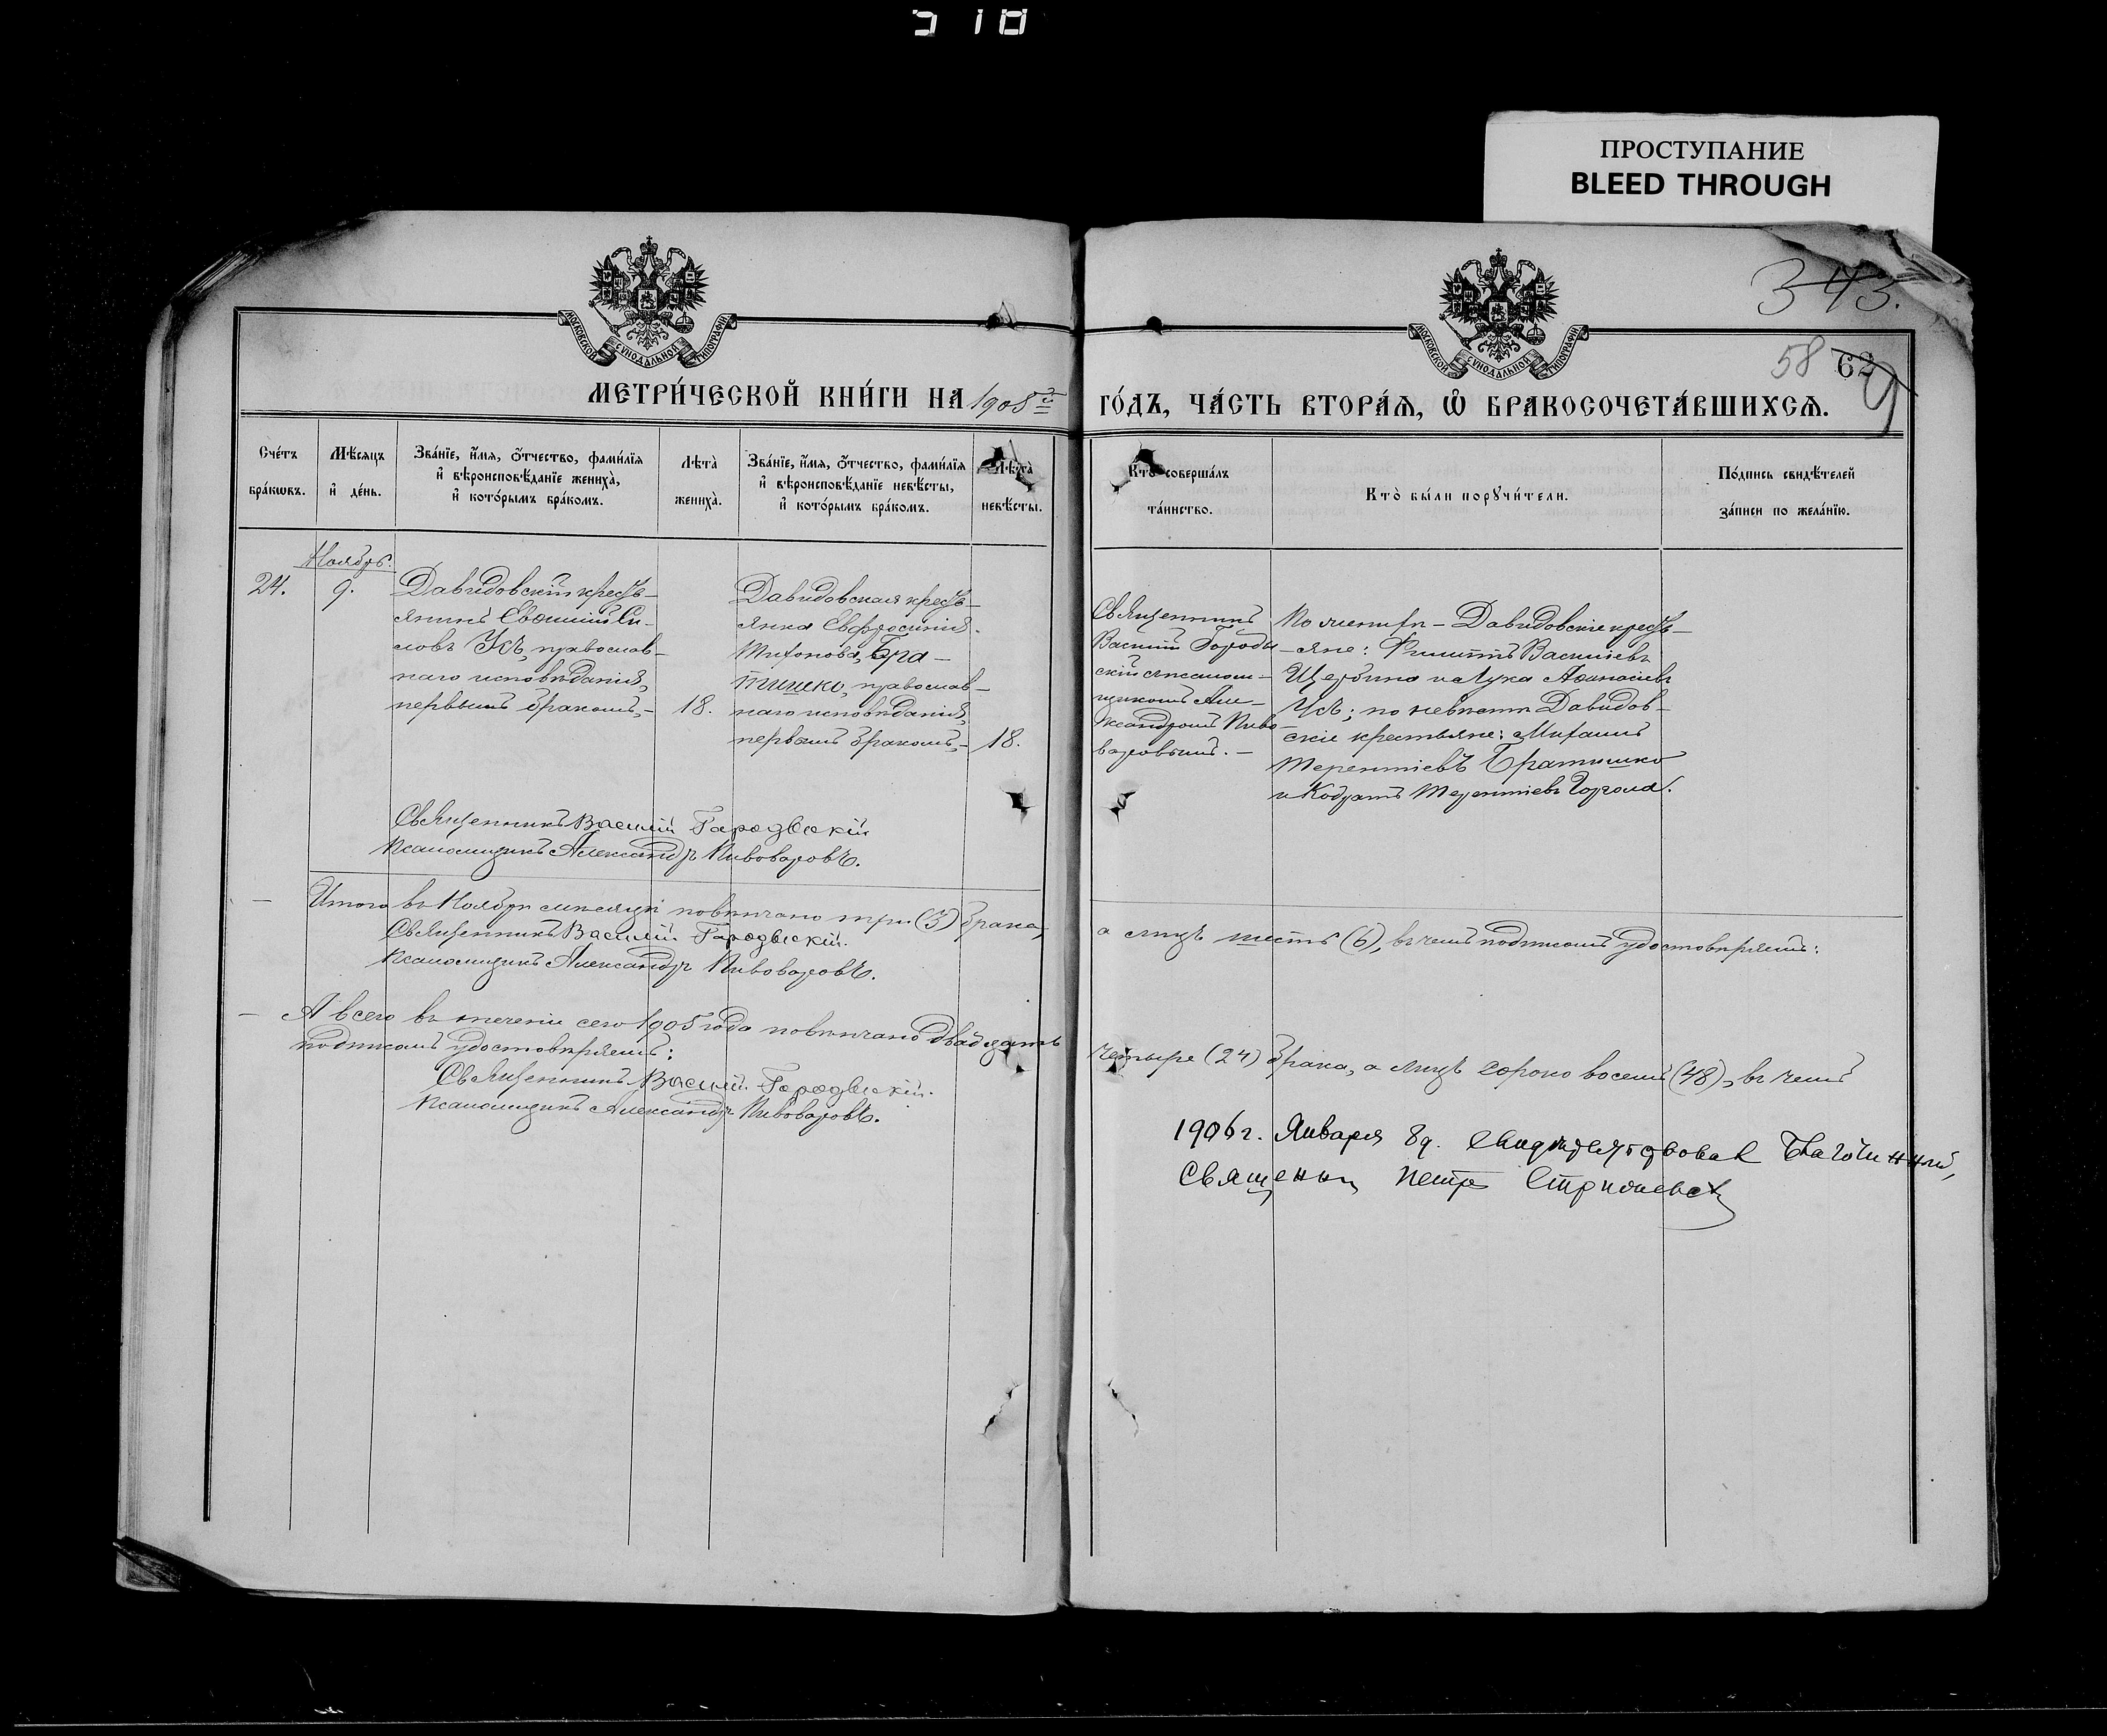 318
ПРОСТУПАНИЕ
BLEED THROUGH
343.
58 62
МОСКОВСКОЙ СѴНОДАЛЬНОЙ ТИПОГРАФІИ
МОСКОВСКОЙ СѴНОДАЛЬНОЙ ТИПОГРАФІИ
МЕТРИ́ЧЕСКОЙ КНИ́ГИ НА 1905й
ГО́ДЪ, ЧА́СТЬ ВТОРА́Ѧ, Ѡ҆ БРАКОСОЧЕТА́ВШИХСѦ.
Сче́тъ бра́кѡвъ.
Мѣ́сяцъ и҆ де́нь.
Зва́нїе, и҆́мя, ѻ҆́тчество, фами́лїя
и҆ вѣроисповѣ́данїе жениха̀,
и҆ кото́рымъ бра́комъ.
Лѣта̀ жениха̀.
Зва́нїе, и҆́мя, ѻ҆́тчество, фами́лїя
и҆ вѣроисповѣ́данїе невѣ́сты,
и҆ кото́рымъ бра́комъ.
Лѣта̀ невѣ́сты.
Кто̀ соверша́лъ та́инство.
Кто̀ бы́ли порꙋчи́тели.
По́дпись свидѣ́телей
за́писи по жела́нїю.
Ноябрь.
24.
9.
Давидовскій кресть-
янинъ Евѳимій Си-
ловъ Усъ, православ-
наго исповѣданія,
первымъ бракомъ,-
18.
Давидовская кресть-
янка Евфросинія
Тихонова, Бра-
тишко, православ-
наго исповѣданія,
первымъ бракомъ,-
18.
Священникъ
Василій Городы-
скій съ псалом-
щикомъ Але-
ксандромъ Пиво-
варовымъ.-
По женихѣ - Давидовскіе кресть-
яне: Филиппъ Васильевъ
Щербина и Лука Аѳанасіевъ
Усъ; по невѣстѣ Давидов-
скіе крестьяне: Михаилъ
Терентіевъ Братишко
и Кодратъ Терентіевъ Горгола.
Священникъ Василій Городыскій
Псаломщикъ Александръ Пивоваровъ.
— Итого въ Ноябрѣ мѣсяцѣ повѣнчано три (3) брака,
а лицъ шесть (6), въ чемъ подписомъ удостовѣряемъ:
Священникъ Василій Городыскій.
Псаломщикъ Александръ Пивоваровъ.
— А всего въ теченіи сего 1905 года повѣнчано двадцать
четыре (24) брака, а лицъ сорокъ восемь (48), въ чемъ
подписомъ удостовѣряемъ:
Священникъ Василій Городыскій.
Псаломщикъ Александръ Пивоваровъ.
1906 г. Января 8 д. Благочинный,
Священ Петръ